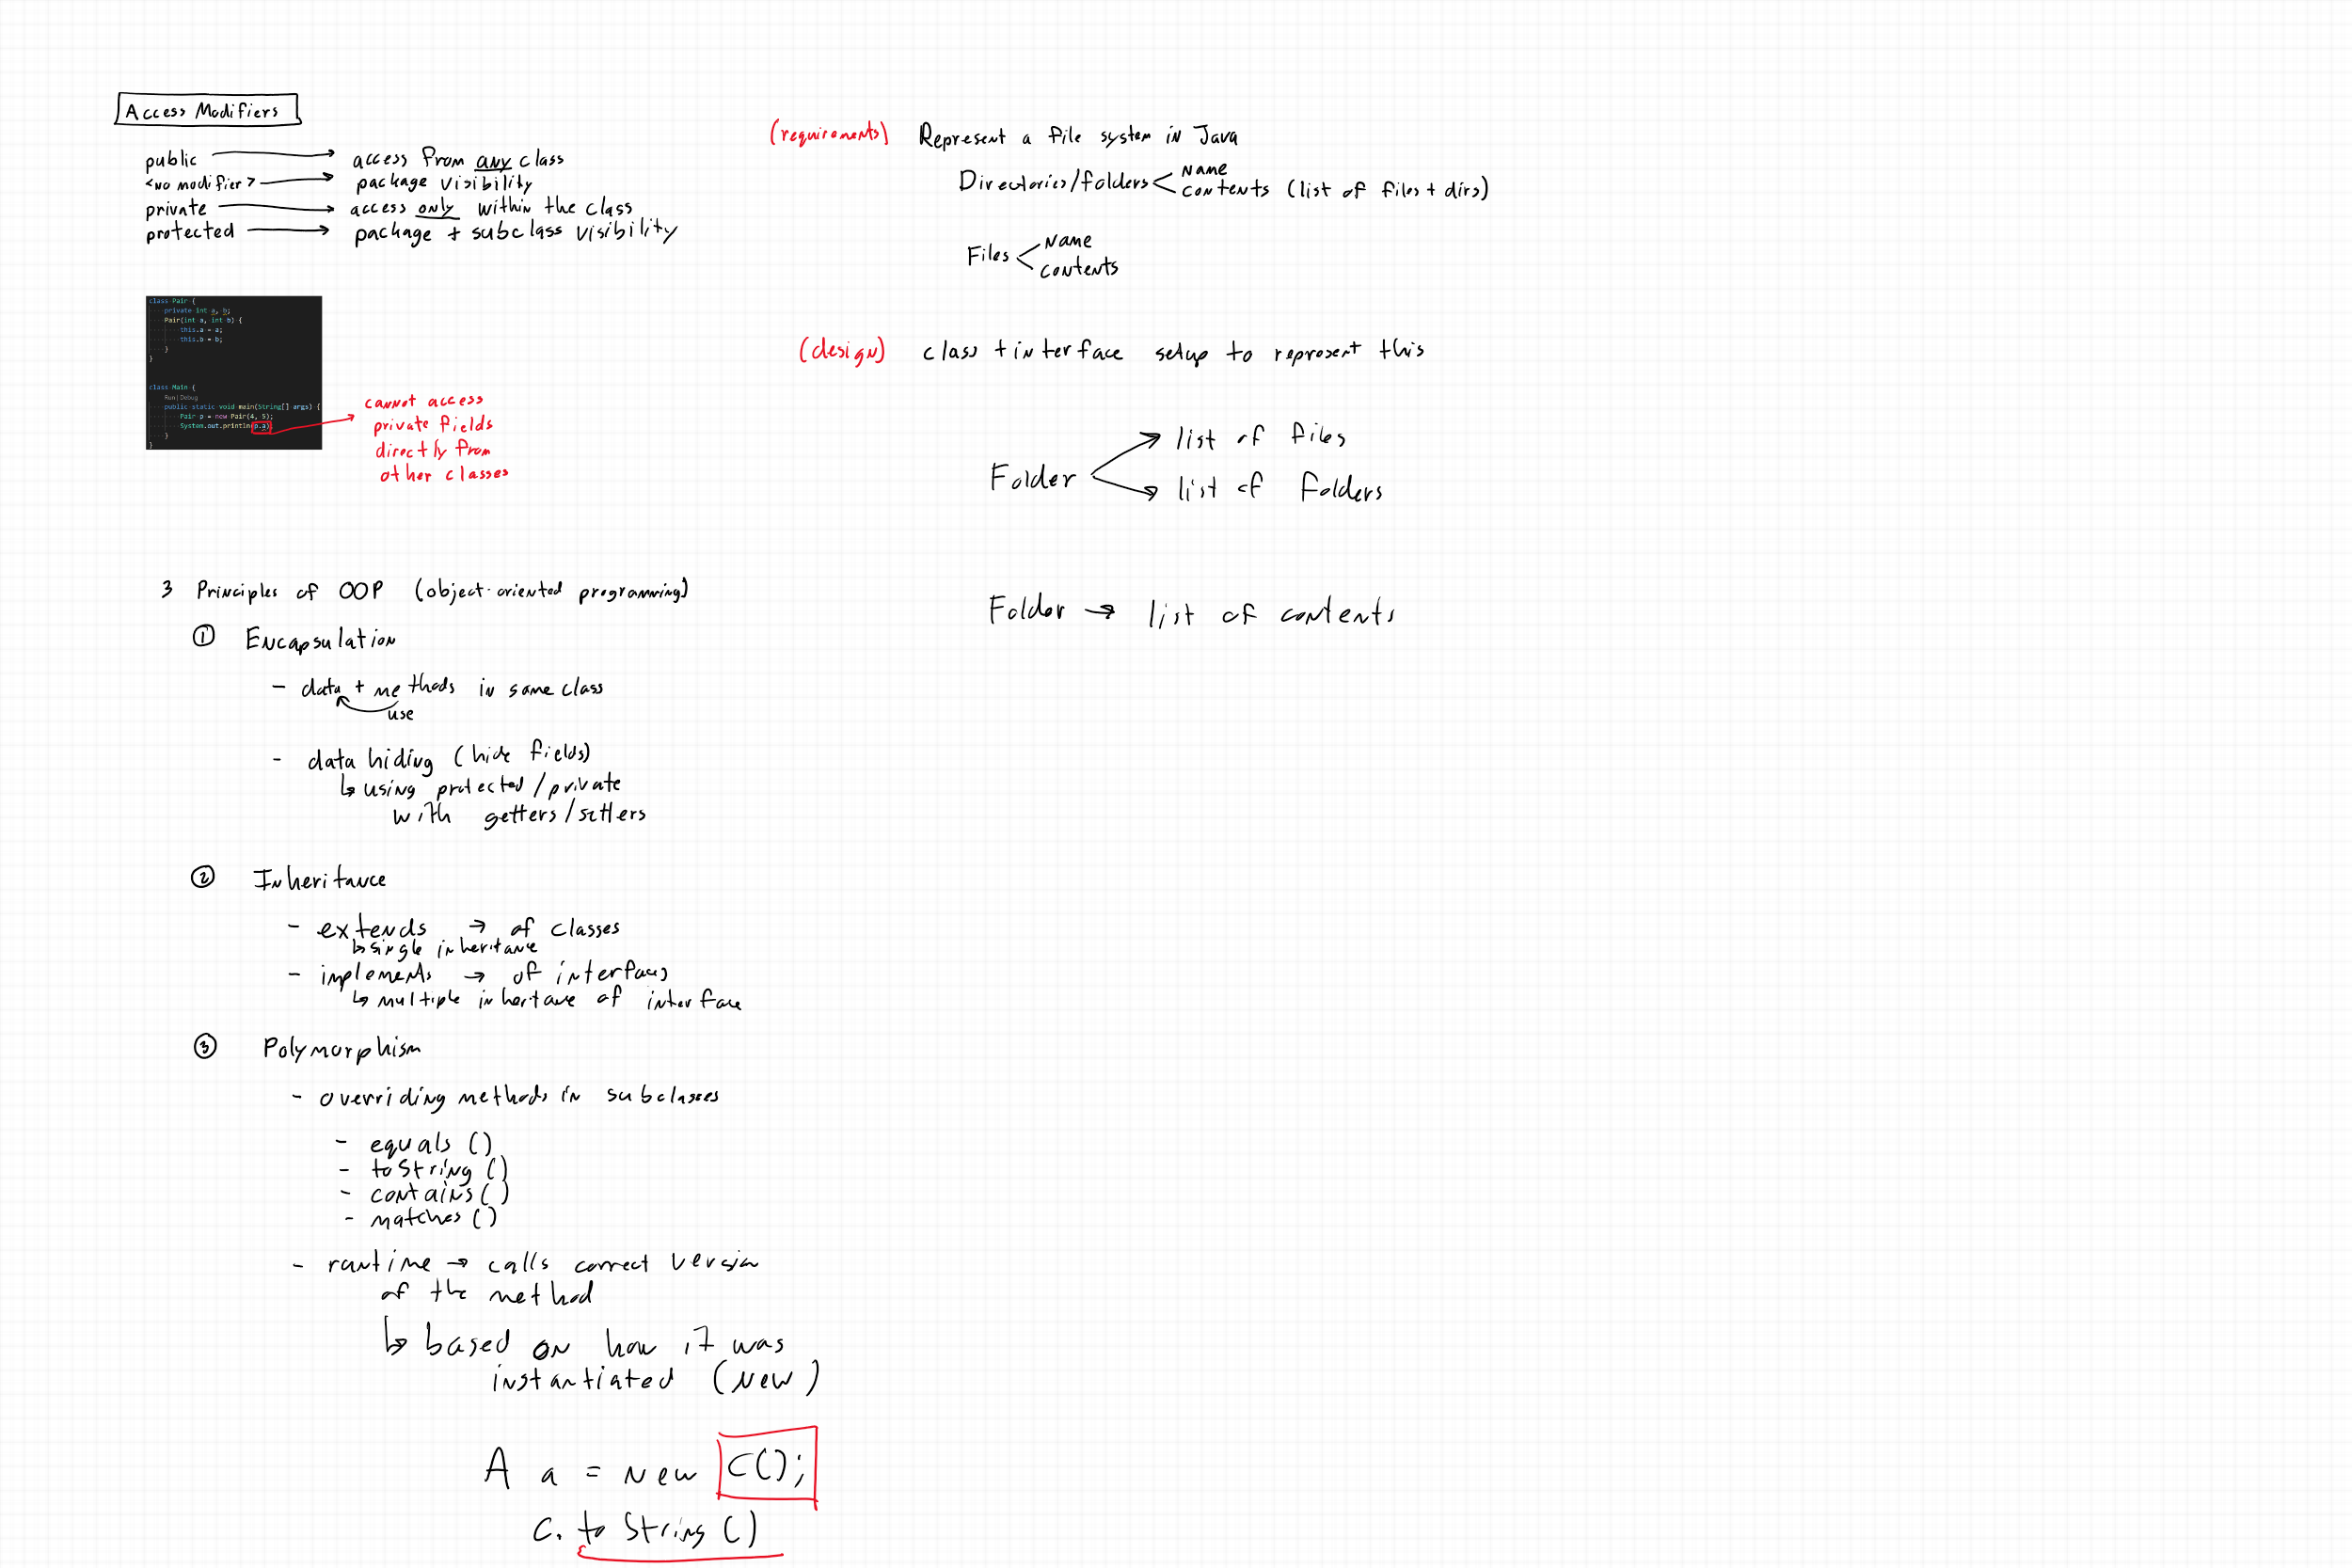 Access Modifiers
public → access from any class
<no modifier> → package visibility
private → access only within the class
protected → package + subclass visibility
class Pair {
private int a, b;
Pair(int a, int b) {
this.a = a;
this.b = b;
}
}
class Main {
Run | Debug
public static void main(String[] args) {
Pair p = new Pair(4, 5);
System.out.println(p.a);
}
}
cannot access
private fields
directly from
other classes
3 Principles of OOP (object-oriented programming)
① Encapsulation
- data + methods in same class
use
- data hiding (hide fields)
↳ using protected/private
with getters/setters
② Inheritance
- extends → of classes
↳ single inheritance
- implements → of interfaces
↳ multiple inheritance of interface
③ Polymorphism
- overriding methods in subclasses
- equals ()
- toString ()
- contains ()
- matches ()
- runtime → calls correct version
of the method
↳ based on how it was
instantiated (new)
A a = new C();
C. toString ()
(requirements) Represent a file system in Java
Directories/folders < name
contents (list of files + dirs)
Files < name
contents
(design) class + interface setup to represent this
Folder → list of files
→ list of folders
Folder → list of contents